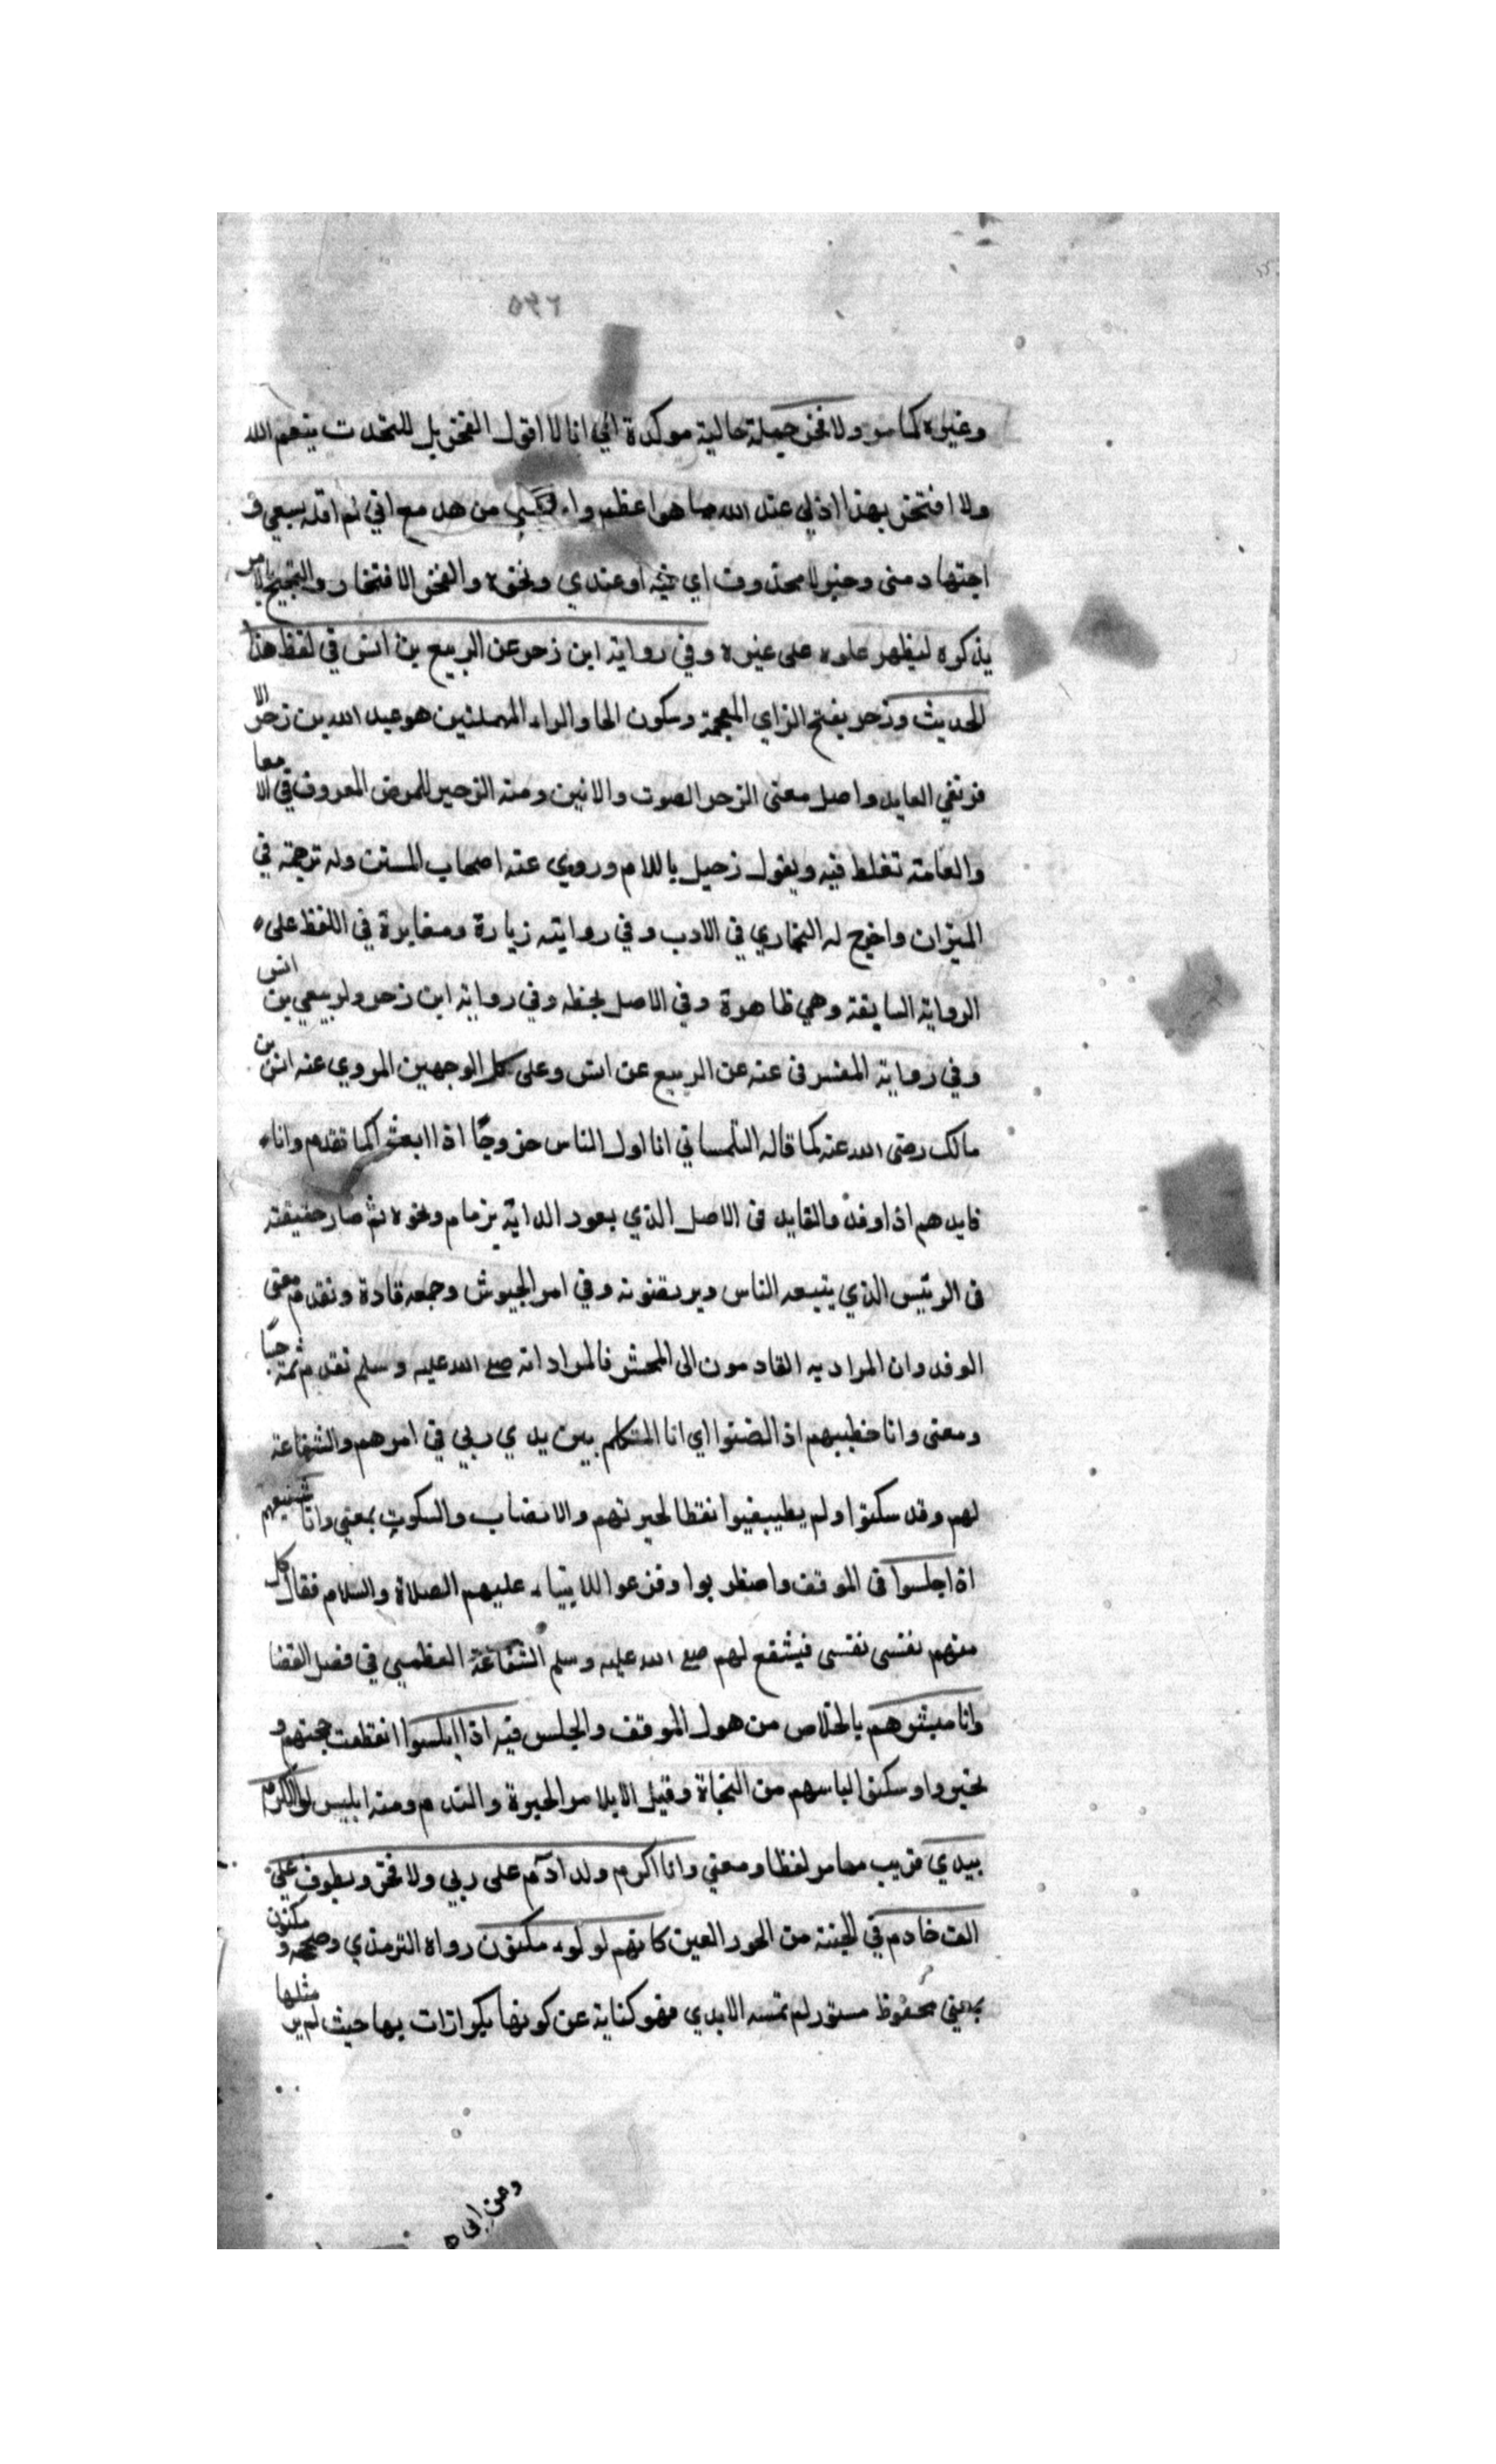 ٥٣٢
وغيره كما مر ولا فخر جملة حالية موكدة اي انا لا اقول الفخر بل للتحدث بنعم الله
ولا افتخر بهذا اذ لي عند الله ما هو اعظم واكبر من هد مع اني لم اقله بسعي و
اجتهاد مني وخبر لا محذوف اي فيه او عندي ونحوه والفخر الافتخار والتبجيح بامر
يذكره ليظهر علوه على غيره وفي رواية ابن زحر عن الربيع بن انس في لفظ هذا
الحديث وزحر بفتح الزاي المعجمة وسكون الحا والراء المهملتين هو عبيد الله بن زحر الا
فريقي العابد واصل معنى الزحر الصوت والانين ومنه الزحير للمرض المعروف في الامعا
والعامة تغلط فيه ويقول زحيل باللام وروي عنه اصحاب السنن وله ترجمة في
الميزان واخرج له البخاري في الادب وفي روايته زيادة ومغايرة في اللفظ على
الرواية السابقة وهي ظاهرة وفي الاصل بخطه وفي رواية ابن زحر ولربيعي بن انس
وفي رواية المفسر في عنه عن الربيع عن انس وعلى كل الوجهين المروي عنه انس بن
مالك رضى الله عنه كما قاله التلمساني انا اول الناس خروجًا اذا ابعثوا كما تقدم وانا
قايدهم اذا وفدوا والقايد في الاصل الذي يعود الداية بزمام ونحوه ثم صار حقيقة
في الرئيس الذي يتبعه الناس ويرتضونه وفي امر الجيوش وجمعه قادة وتقدم معنى
الوفد وان المراد به القادمون الى المحشر فالمراد انه صلى الله عليه وسلم تقدم ثمة
ومعنى وانا خطيبهم اذا انصتوا اي انا المتكلم بين يدي ربي في امرهم والشفاعة
لهم وقد سكتوا ولم يطيبقوا نقطا لحيرتهم والانضاب والسكوت بمعنى وانا شفيعهم
اذا جلسوا في الموقف واضطربوا وفزعوا للانبياء عليهم الصلاة والسلام فقال كل
منهم نفسى نفسى فيشفع لهم صلى الله عليه وسلم الشفاعة العظمى في فصل القضا
وانا مبشرهم بالخلاص من هول الموقف والجلس فيه اذا ابلسوا انقطعت حجتهم و
تحيروا وسكتوا لياسهم من النجاة وقيل الابلاس الحيرة والندم ومنه ابليس لوا الكرم
بيدي قريب مما مر لفظا ومعنى وانا اكرم ولد ادم على ربي ولا فخر ويطوف علي
الف خادم في الجنة من الحور العين كانهم لولوء مكنون رواه الترمذي وصححه و مكنون
بمعنى محفوظ مستور لم تمسه الايدي فهو كناية عن كونها بكرا ذات بها حيث لم ير مثلها
وعن ابى ه